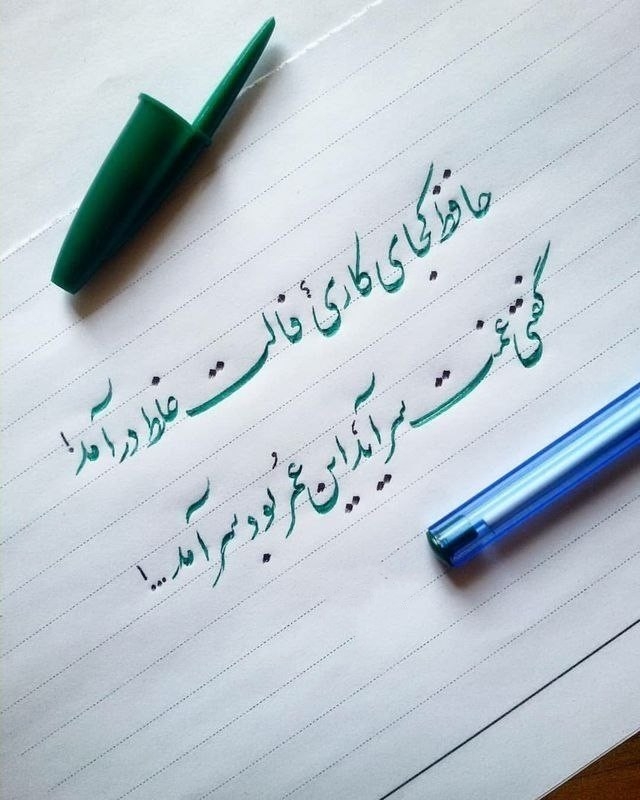 حافظ کجای کاری؟ فالت غلط درآمد!
گفتی غمت سرآید، این عمر بود و سرآمد...!